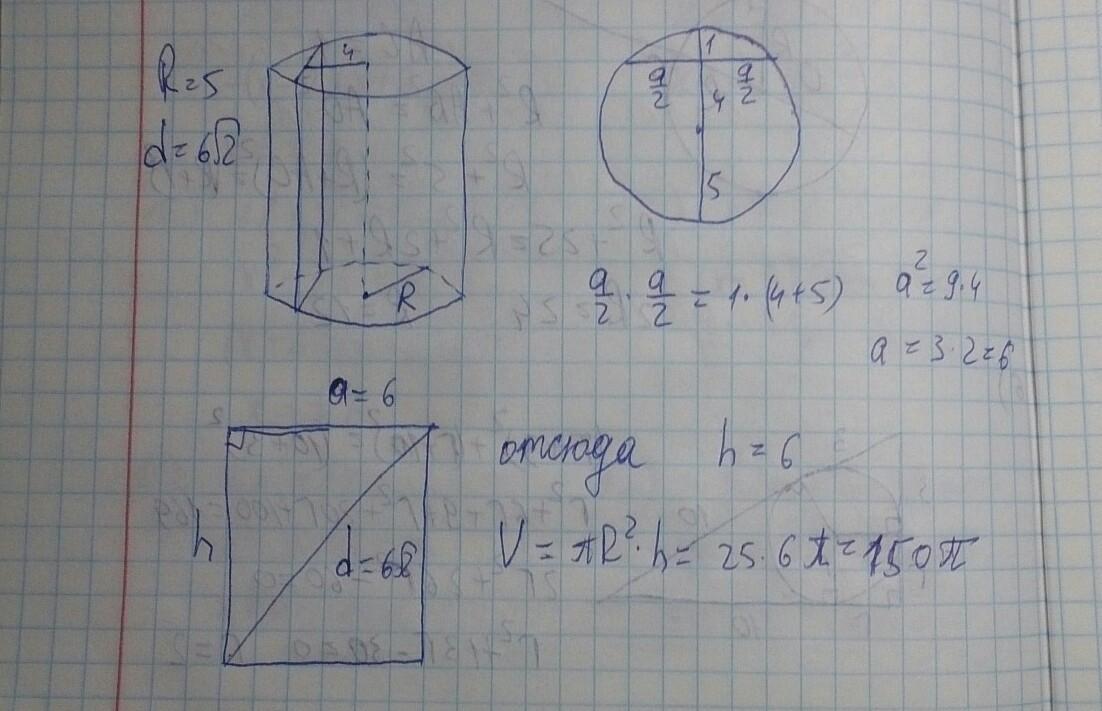 R=5
d=6√2
4
R
1
a/2 a/2
4
5
a/2 · a/2 = 1·(4+5)
a²=9·4
a=3·2=6
a=6
h
d=6√2
отсюда h=6
V=πR²·h= 25·6π=150π